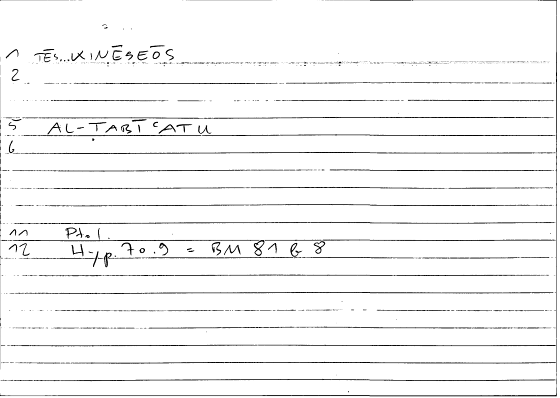 1 TĒS...KINĒSEŌS
2
5 AL-ṬABĪʿATU
6
11 Ptol.
12 Hyp. 70.9 = BM 81 b 8